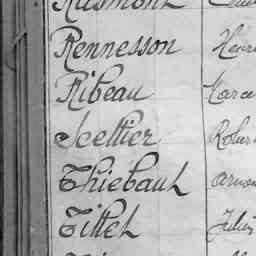 Rennesson Henri
Ribeau Marce
Scellier Rober
Thiebaut Arman
Tillet Julie